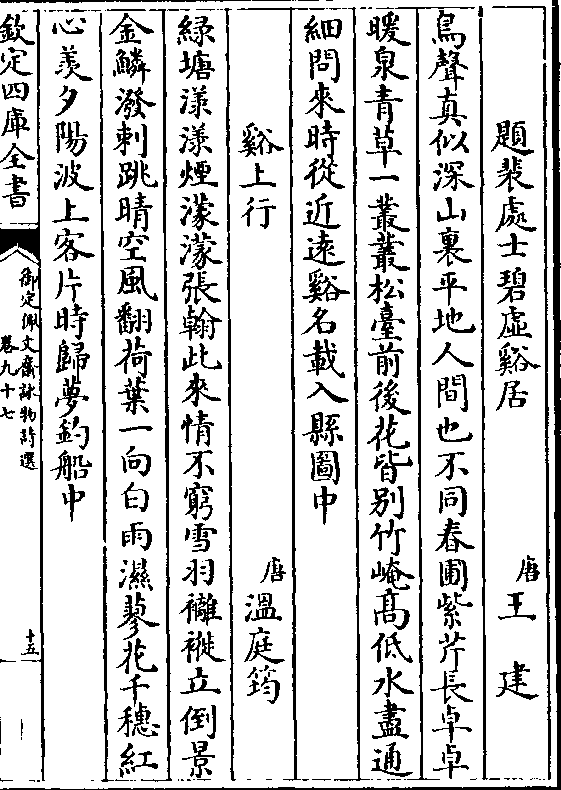 題裴處士碧虛谿居
唐王建
鳥聲真似深山裏平地人間也不同春圃紫芹長卓卓
暖泉青草一叢叢松臺前後花皆别竹崦髙低水盡通
細問來時從近逺谿名載入縣圖中
谿上行
唐温庭筠
緑塘漾漾煙濛濛張翰此來情不窮雪羽襳褷立倒景
金鱗潑剌跳晴空風翻荷葉一向白雨濕蓼花千穗紅
心羡夕陽波上客片時歸夢釣船中
欽定四庫全書
御定佩文齋詠物詩選
卷九十七
十五